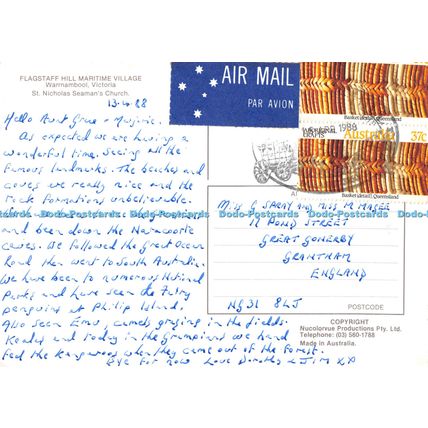 FLAGSTAFF HILL MARITIME VILLAGE
Warrnambool, Victoria
St. Nicholas Seaman's Church.
13.4.88
Hello Aunt Grace + Marjorie.
As expected we are having a
wonderful time. Seeing all the
famous landmarks. The beaches and
caves we really nice and the
rock formations unbelievable.
and been down the Naracoorte
caves. We followed the Great Ocean
Road then went to South Australia.
We have been to numerous National
Parks and have seen the Fairy
penguins at Philip Island.
Also seen Emu, camels grazing in the fields.
Koalas and today in the Grampians we hand
feed the kangaroos when they came out of the forest.
Bye for now Love Dorothy + Jim XX
AIR MAIL
PAR AVION
ABORIGINAL
CRAFTS
Australia
37c
Basket (detail) Queensland
Basket (detail) Queensland
1988
M. G SPRAY AND MISS M MAGEE
12 POND STREET
GREAT GONERBY
GRANTHAM
ENGLAND
NG31 8LJ
POSTCODE
COLOUR BY
Nucolorvue Productions Pty. Ltd.
Telephone: (03) 580-1788
Made in Australia.
Dodo-Postcards Dodo-Postcards Dodo-Postcards Dodo-Postcards
www.dodo-postcards.com